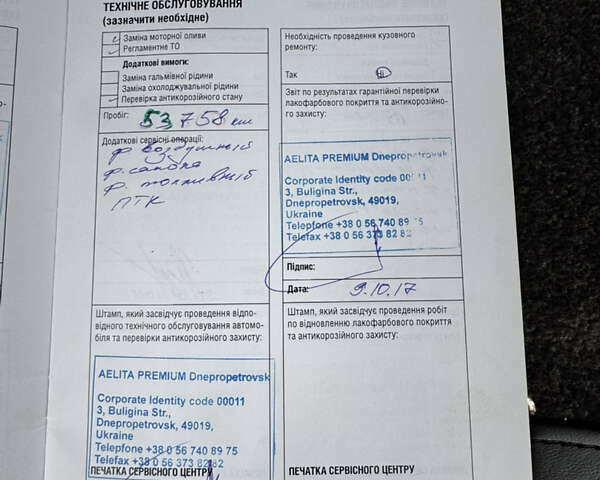 ТЕХНІЧНЕ ОБСЛУГОВУВАННЯ
(зазначити необхідне)
Заміна моторної оливи
Регламентне ТО
Додаткові вимоги:
Заміна гальмівної рідини
Заміна охолоджувальної рідини
Перевірка антикорозійного стану
Пробіг: 53758 км
Додаткові сервісні операції:
ф. воздушный
ф. салона
ф. топливный
ПТК
Штамп, який засвідчує проведення відпо-
відного технічного обслуговування автомо-
біля та перевірки антикорозійного захисту:
AELITA PREMIUM Dnepropetrovsk
Corporate Identity code 00011
3, Buligina Str.,
Dnepropetrovsk, 49019,
Ukraine
Telepfone +38 0 56 740 89 75
Telefax +38 0 56 373 82 82
ПЕЧАТКА СЕРВІСНОГО ЦЕНТРУ
Необхідність проведення кузовного
ремонту:
Так Ні
Звіт по результатах гарантійної перевірки
лакофарбового покриття та антикорозійно-
го захисту:
AELITA PREMIUM Dnepropetrovsk
Corporate Identity code 00011
3, Buligina Str.,
Dnepropetrovsk, 49019,
Ukraine
Telepfone +38 0 56 740 89 75
Telefax +38 0 56 373 82 82
Підпис:
Дата: 9.10.17
Штамп, який засвідчує проведення робіт
по відновленню лакофарбового покриття
та антикорозійного захисту:
ПЕЧАТКА СЕРВІСНОГО ЦЕНТРУ